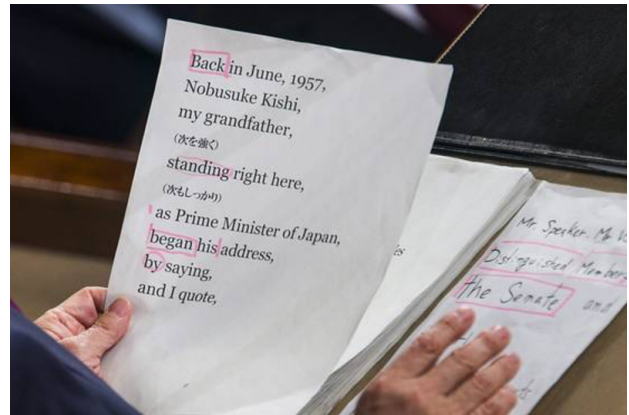 Back in June, 1957,
Nobusuke Kishi,
my grandfather,
(次を強く)
standing right here,
(次もしっかり)
as Prime Minister of Japan,
began his address,
by saying,
and I quote,
Mr. Speaker, Mr.
Distinguished Members
the Senate and